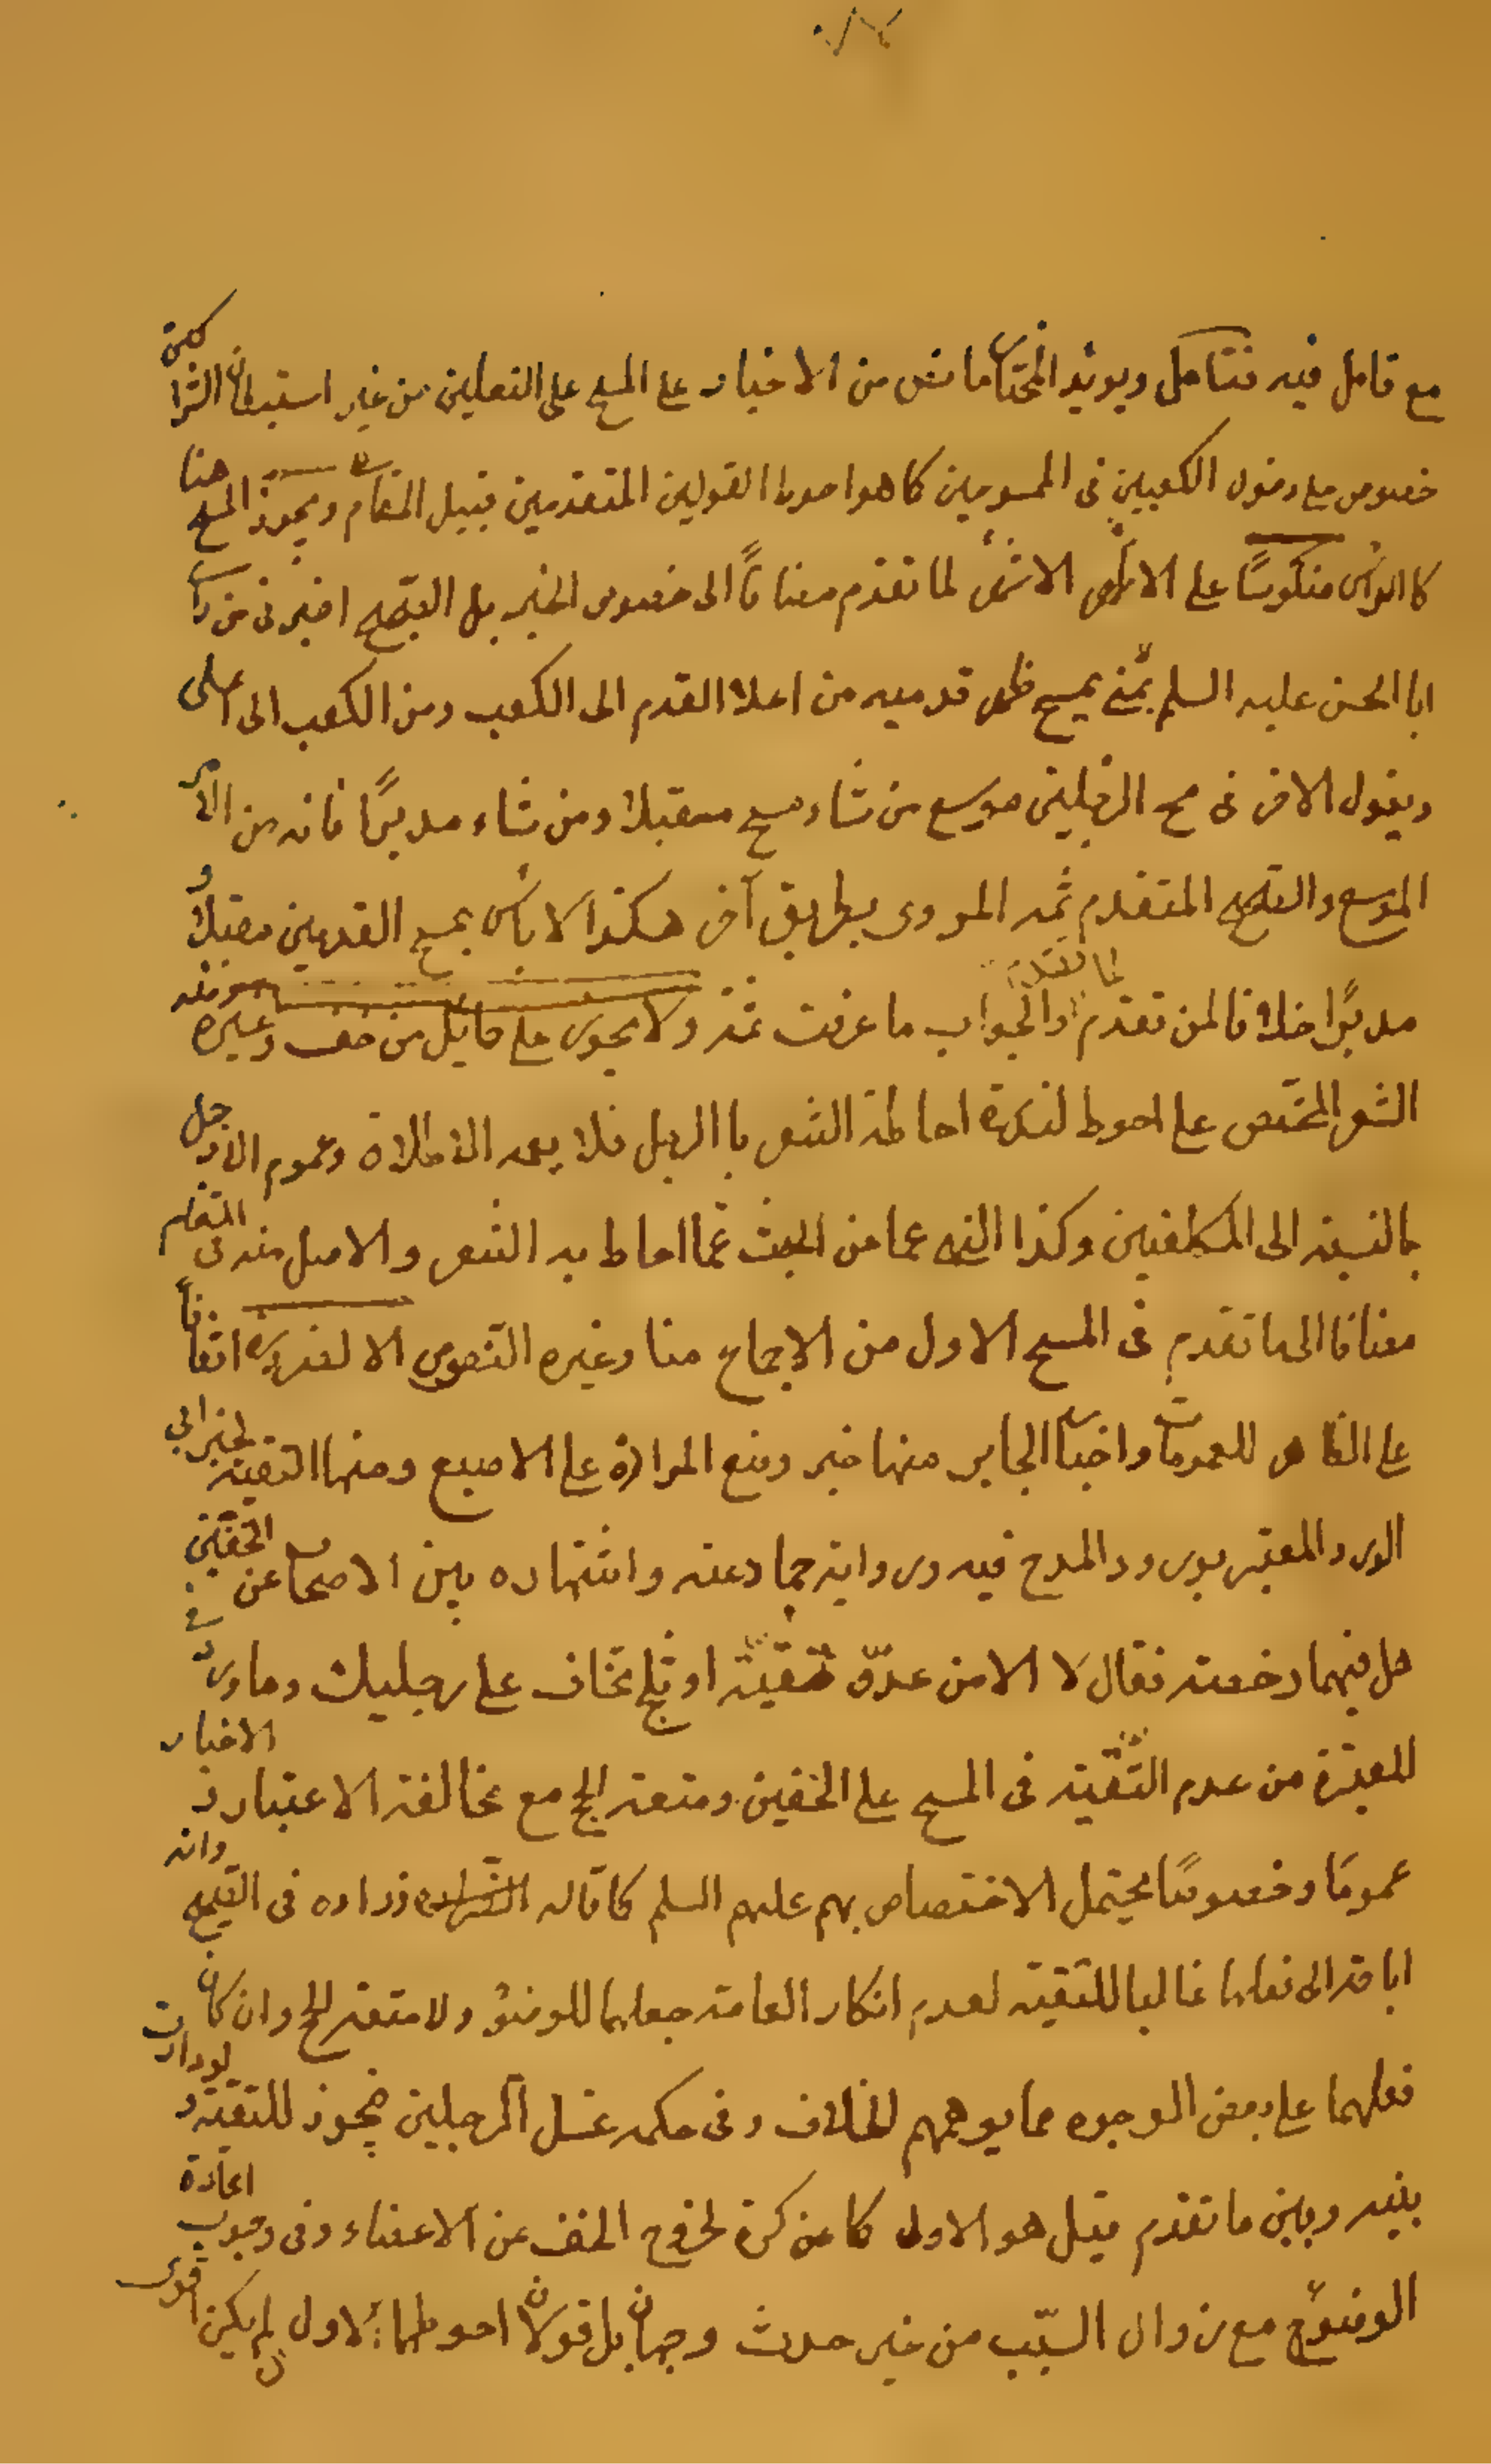 مع تامل فيه فتامل ويويد المختار ما نص من الاخبار على المسح على النعلين من غير استبطان الشراك
خصوص مع دخول الكعبين فى الممسوحين كما هو احوط القولين المتقدمين قبيل المقام ويجوز المسح هنا
كالراس منكوسًا على الاظهر الاشهر لما تقدم مضافاً الى خصوص الخبر بل الصحيح اخبرنى من راى
ابا الحسن عليه السلم بمنى يمسح ظهر قدميه من اعلا القدم الى الكعب ومن الكعب الى اعلى
ويقول الامر فى مسح الرجلين موسع من شاء مسح مقبلا ومن شاء مدبرًا فانه من الامر
الموسع والصحيح المتقدم ثمه المروى بطريق آخر هكذا لا باس بمسح القدمين مقبلاً و
مدبرًا خلافا لمن تقدم لما تقدم والجواب ما عرفت ثمة ولا يجزى على حايل من خف وغيره ومنه
الشعر المختص على احوط لندرة احاطة الشعر بالرجل فلا يعمه الاطلاق وعموم الارجل
بالنسبة الى المكلفين وكذا النهى عما من البحث عما احاط به الشعر والاصل منه فى المقام
مضافا الى ما تقدم فى المسح الاول من الاجماع منا وغيره النصوص الا لضرورة اتفاقاً
على الظاهر للعمومات واخبار الجباير منها خبر وضع المرارة على الاصبع ومنها التقية لخبر ابى
الورد المعتبر بورود المدح فيه ورواية حماد عنه واشتهاره بين الاصحاب عن الخفين
هل فيهما رخصة فقال لا الا من عدوّ تقية او ثلج تخاف على رجليك وما ورد فى
المعتبرة من عدم التقية فى المسح على الخفين ومتعة الحج مع مخالفة الاعتبار و الاخبار
عمومًا وخصوصًا يحتمل الاختصاص بهم عليهم السلم كما قاله زرارة فى الصحيح وانه
فعلهما غالبا للتقية لعدم انكار العامة جعلهما للوضوء ولا متعة الحج وان كان
فعلهما على بعض الوجوه مما يوهمهم الخلاف وفى حكمه غسل الرجلين فيجوز للتقية و لو دارت
بينه وبين ما تقدم قيل هو الاولى كما عن كرة لخروج الخف عن الاعضاء وفى وجوب اعادة
الوضوء مع زوال السبب من غير حدث وجهان بل قولان احوطهما الاول ان لم يكن اقوى